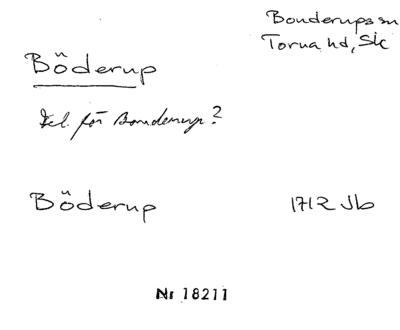 Bonderups sn
Torna hd, Sk
Böderup
Fel. för Bonderup?
Böderup 1712 Jb
Nr 18211